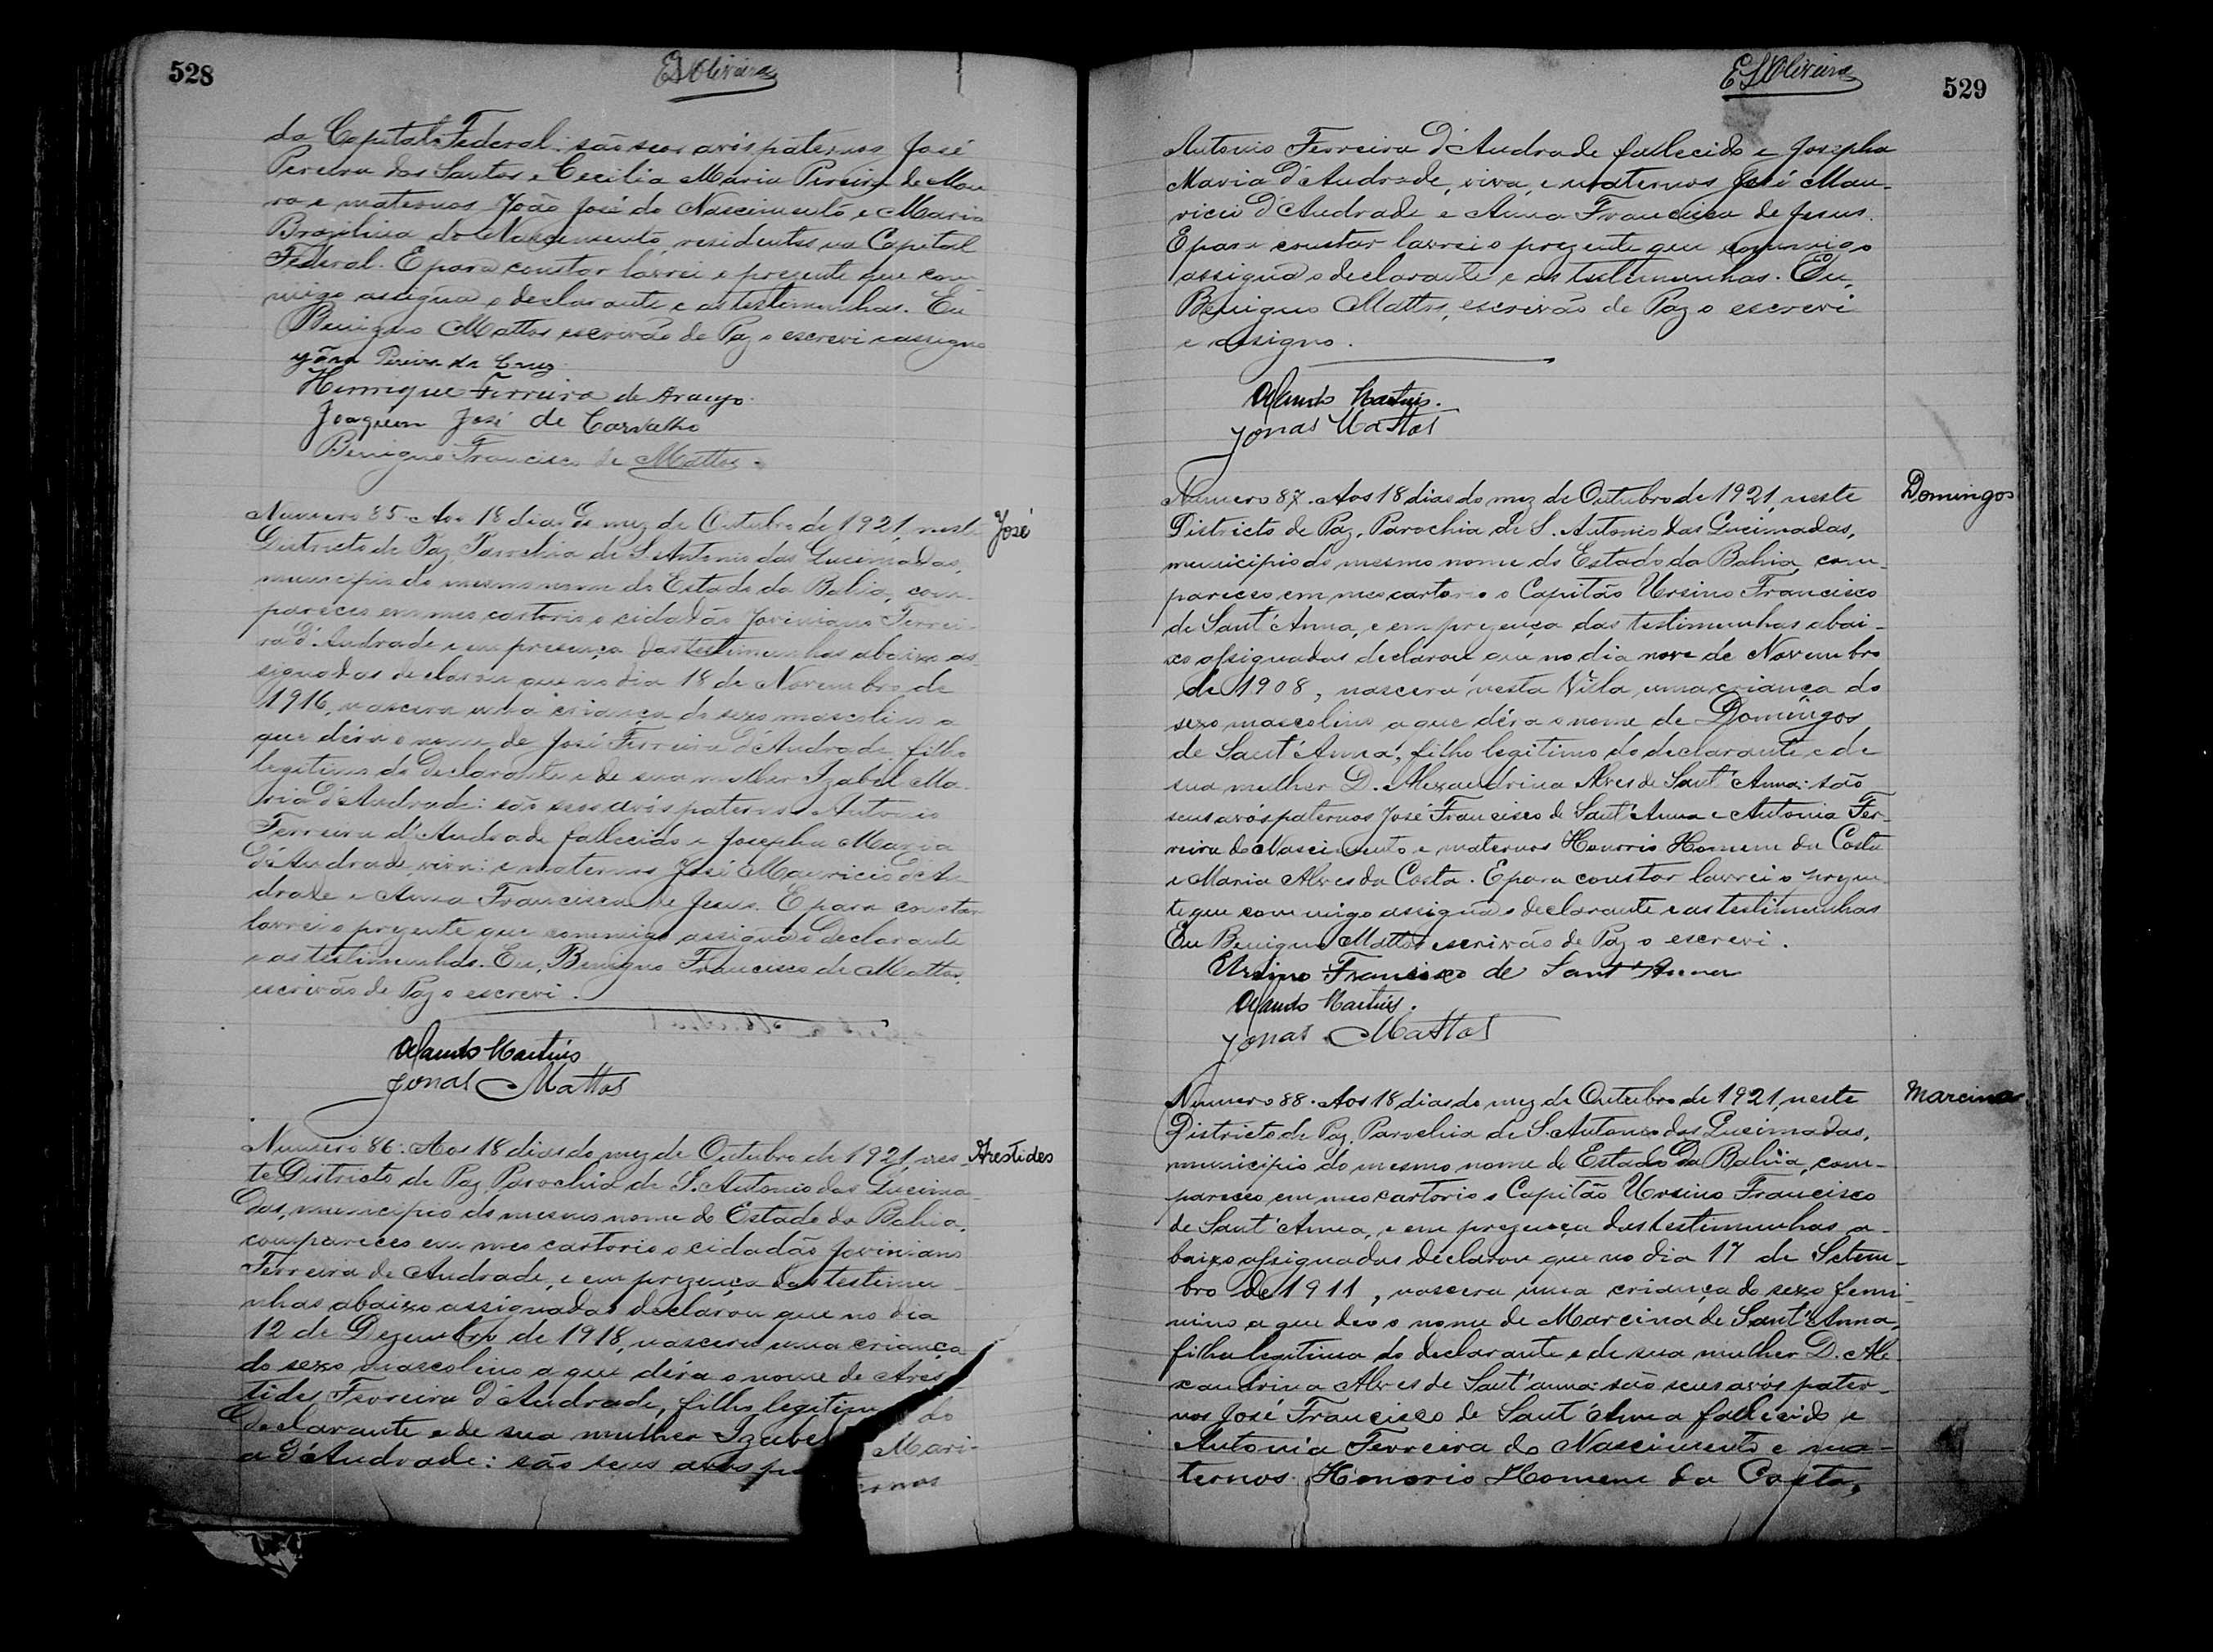 528
ESOliveira
da Capital Federal: são seos avós paternos José
Pereira dos Santos e Cecilia Maria Pereira de Mou
ra e maternos João José do Nascimento e Maria
Brazilina do Nascimento, residentes na Capital
Federal. E para constar lavrei o prezente que com
migo assigna o declarante e as testemunhas. Eu
Benigno Mattos escrivão de Paz o escrevi e assigno
Pereira da Cruz
Henrique Ferreira de Araujo
Joaquim José de Carvalho
Benigno Francisco de Mattos.
José
Numero 85. Aos 18 dias do mez de Outubro de 1921, neste
Districto de Paz, Parochia de S. Antonio das Queimadas,
municipio do mesmo nome do Estado da Bahia, com-
pareceo em meo cartorio o cidadão Joviniano Ferrei-
ra d'Andrade e em presença das testemunhas abaixo as-
signadas declarou que no dia 18 de Novembro de
1916, nascera uma criança do sexo mascolino a
que déra o nome de José Ferreira d'Andrade, filho
legitimo do Declarante e de sua mulher Izabel Ma-
ria d'Andrade: são seus avós paternos Antonio
Ferreira d'Andrade fallecido e Josepha Maria
d'Andrade, viva: e maternos José Mauricio d'An
drade e Anna Francisca de Jesus. E para constar
lavrei o prezente que commigo assigna o Declarante
e as testimunhas. Eu, Benigno Francisco de Mattos,
escrivão de Paz o escrevi.
Orlando Martins
Jonas Mattos
Arestides
Numero 86: Aos 18 dias do mez de Outubro de 1921, nes-
te Districto de Paz, Parochia de S. Antonio das Queima-
das, municipio do mesmo nome do Estado da Bahia,
compareceo em meo cartorio o cidadão Joviniano
Ferreira de Andrade, e em prezença das testimu-
nhas abaixo assignadas declarou que no dia
12 de Dezembro de 1918, nascera uma criança
do sexo mascolino a que déra o nome de Ares-
tides Ferreira d'Andrade, filho legitimo do
Declarante e de sua mulher Izabel Mari-
a d'Andrade: são seus avós paternos
529
ESOliveira
Antonio Ferreira d'Andrade fallecido e Josepha
Maria d'Andrade, viva, e maternos José Mau-
ricio d'Andrade e Anna Francisca de Jesus.
E para constar lavrei o prezente que commigo
assigna o declarante e as testemunhas. Eu,
Benigno Mattos, escrivão de Paz o escrevi
e assigno.
Orlando Martins.
Jonas Mattos
Domingos
Numero 87. Aos 18 dias do mez de Outubro de 1921, neste
Districto de Paz, Parochia de S. Antonio das Queimadas,
municipio do mesmo nome do Estado da Bahia, com-
pareceo em meo cartorio o Capitão Ursino Francisco
de Sant'Anna, e em prezença das testimunhas abai-
xo assignadas declarou que no dia nove de Novembro
de 1908, nascera nesta Villa, uma criança do
sexo mascolino a que déra o nome de Domingos
de Sant'Anna, filho legitimo do declarante e de
sua mulher D. Alexandrina Alves de Sant'Anna: são
seus avós paternos José Francisco de Sant'Anna e Antonia Fer-
reira do Nascimento e maternos Honorio Homem da Costa
e Maria Alves da Costa. E para constar lavrei o prezen
te que commigo assigna o declarante e as testimunhas
Eu Benigno Mattos escrivão de Paz o escrevi.
Ursino Francisco de Sant'Anna
Orlando Martins.
Jonas Mattos
Marcina
Numero 88. Aos 18 dias do mez de Outubro de 1921, neste
Districto de Paz, Parochia de S. Antonio das Queimadas,
municipio do mesmo nome do Estado da Bahia, com-
pareceo em meo cartorio o Capitão Ursino Francisco
de Sant'Anna, e em prezença das testimunhas a-
baixo assignadas declarou que no dia 17 de Setem-
bro de 1911, nascera uma criança do sexo femi-
nino a que deo o nome de Marcina de Sant'Anna,
filha legitima do declarante e de sua mulher D. Ale-
xandrina Alves de Sant'anna: são seus avós pater-
nos José Francisco de Sant'Anna fallecido e
Antonia Ferreira do Nascimento e ma-
ternos Honorio Homem da Costa,